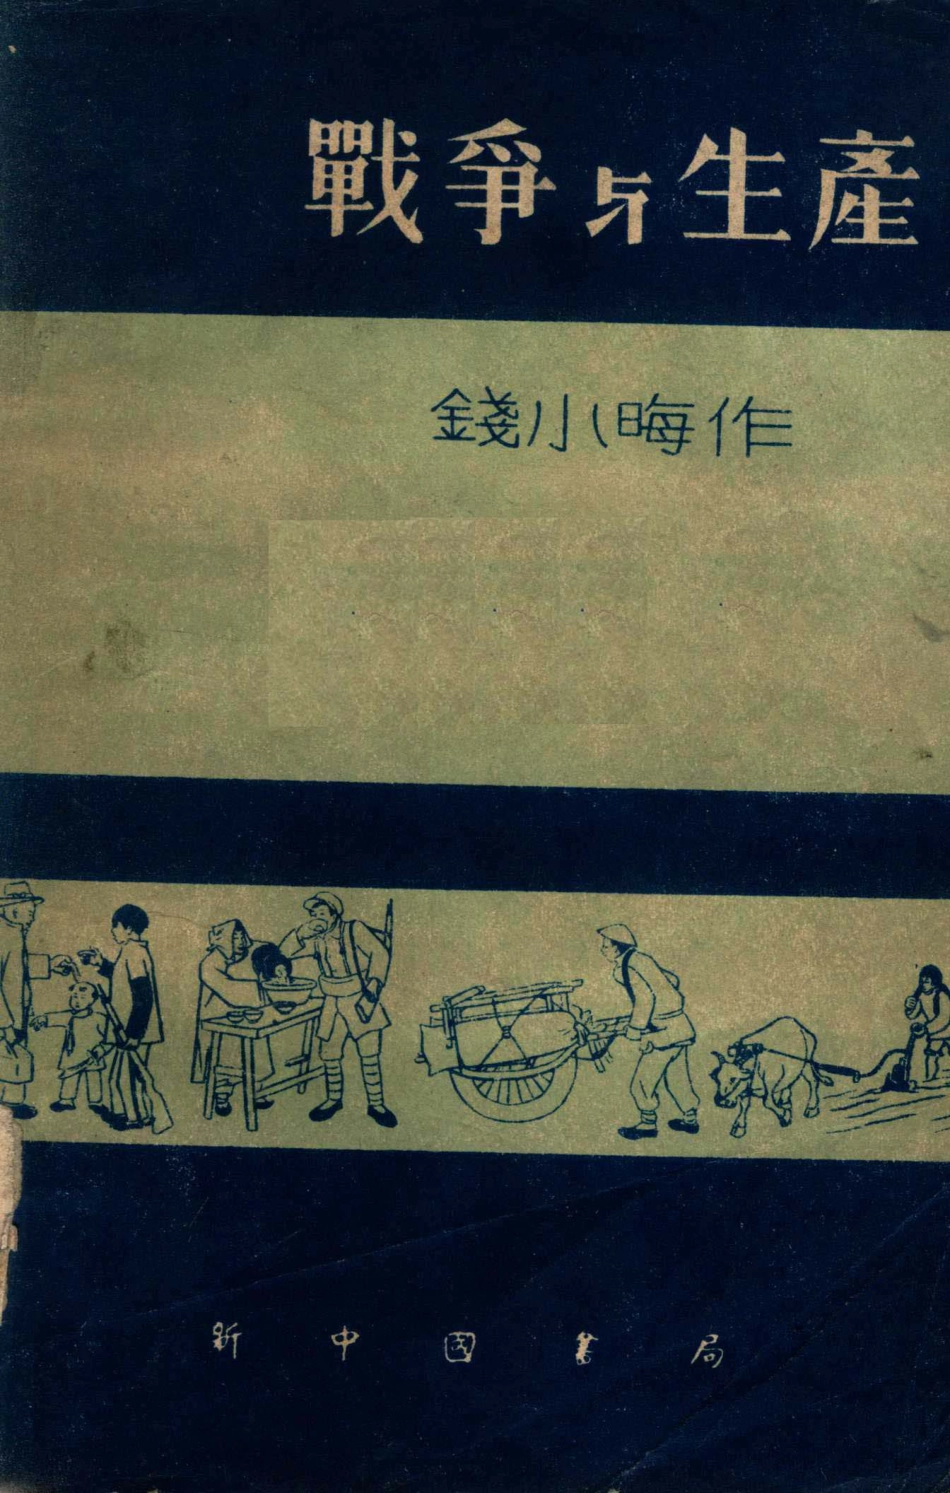 戰爭与生產
錢小晦作
新中國書局